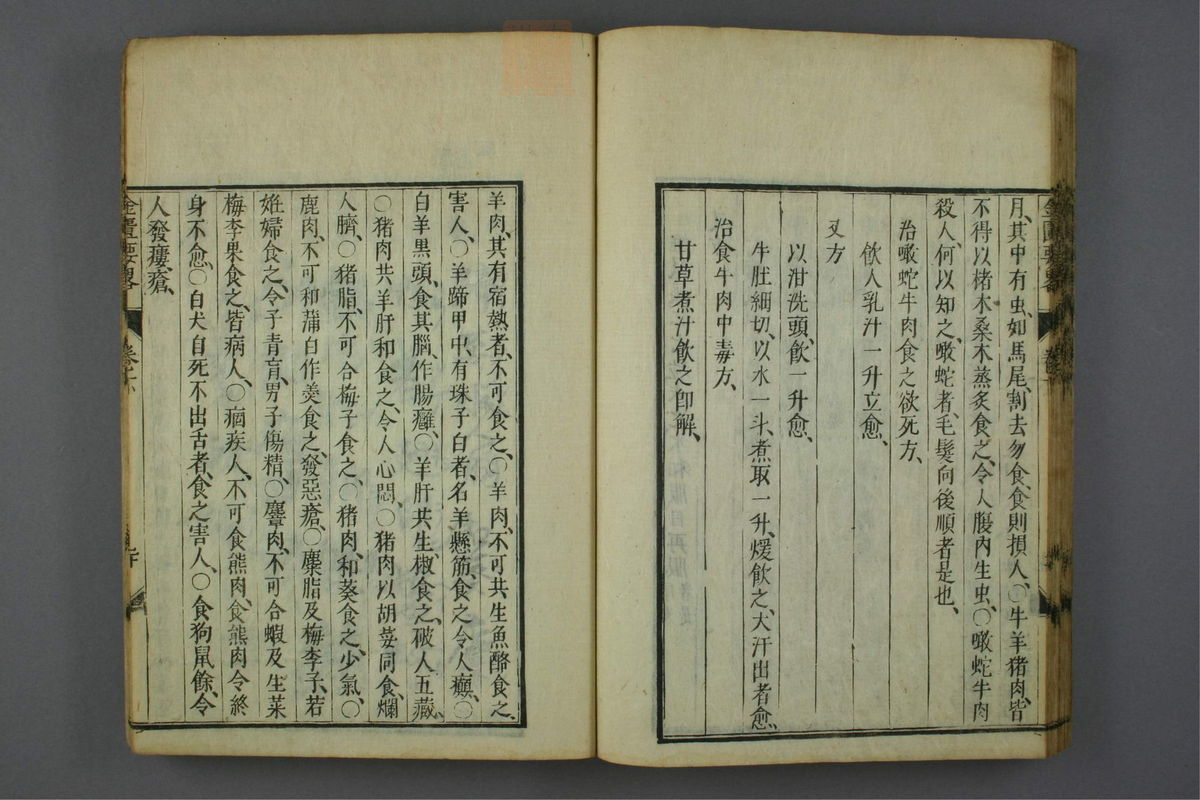 月、其中有虫、如馬尾、割去勿食、食則損人、〇牛羊猪肉、皆
不得以楮木桑木蒸炙食之、令人腹内生虫、〇噉蛇牛肉
殺人、何以知之、噉蛇者、毛髮向後順者是也、
治噉蛇牛肉食之欲死方、
飲人乳汁一升立愈、
又方
以泔洗頭、飲一升愈、
牛肚細切、以水一斗、煮取一升、煖飲之、大汗出者愈、
治食牛肉中毒方、
甘草煮汁飲之即解、
羊肉、其有宿熱者、不可食之、〇羊肉、不可共生魚酪食之、
害人、〇羊蹄甲中、有珠子白者、名羊懸筋、食之令人癲、〇
白羊黒頭、食其腦、作腸癰、〇羊肝共生椒食之、破人五藏、
〇猪肉共羊肝和食之、令人心悶、〇猪肉以胡荽同食、爛
人臍、〇猪脂、不可合梅子食之、〇猪肉、和葵食之、少氣、〇
鹿肉、不可和蒲白作羮食之、發惡瘡、〇麋脂及梅李子、若
姙婦食之、令子青盲、男子傷精、〇麞肉、不可合蝦及生菜
梅李果食之、皆病人、〇痼疾人、不可食熊肉、食熊肉令終
身不愈、〇白犬自死不出舌者、食之害人、〇食狗鼠餘、令
人發瘻、瘡、
金匱要畧
卷下